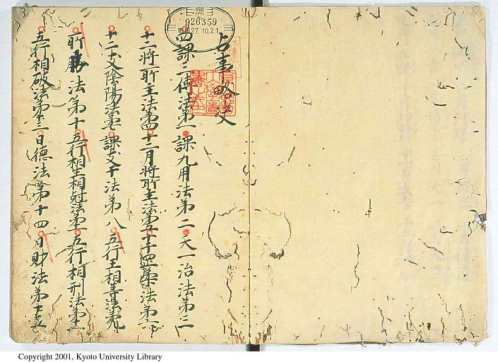 占事略决
四課三傳法第一 課九用法第二 天一治法第三
十二將所主法第四 十二月將所主法第五 十干剛柔法第六
十二支陰陽法第七 課支干法第八 五行王相等法第九
所勝法第十 五行相生相剋法第十一 五行相刑法第十二
五行相破法第十三 日德法第十四 日財法第十五
926359
27.10.21
Copyright 2001, Kyoto University Library